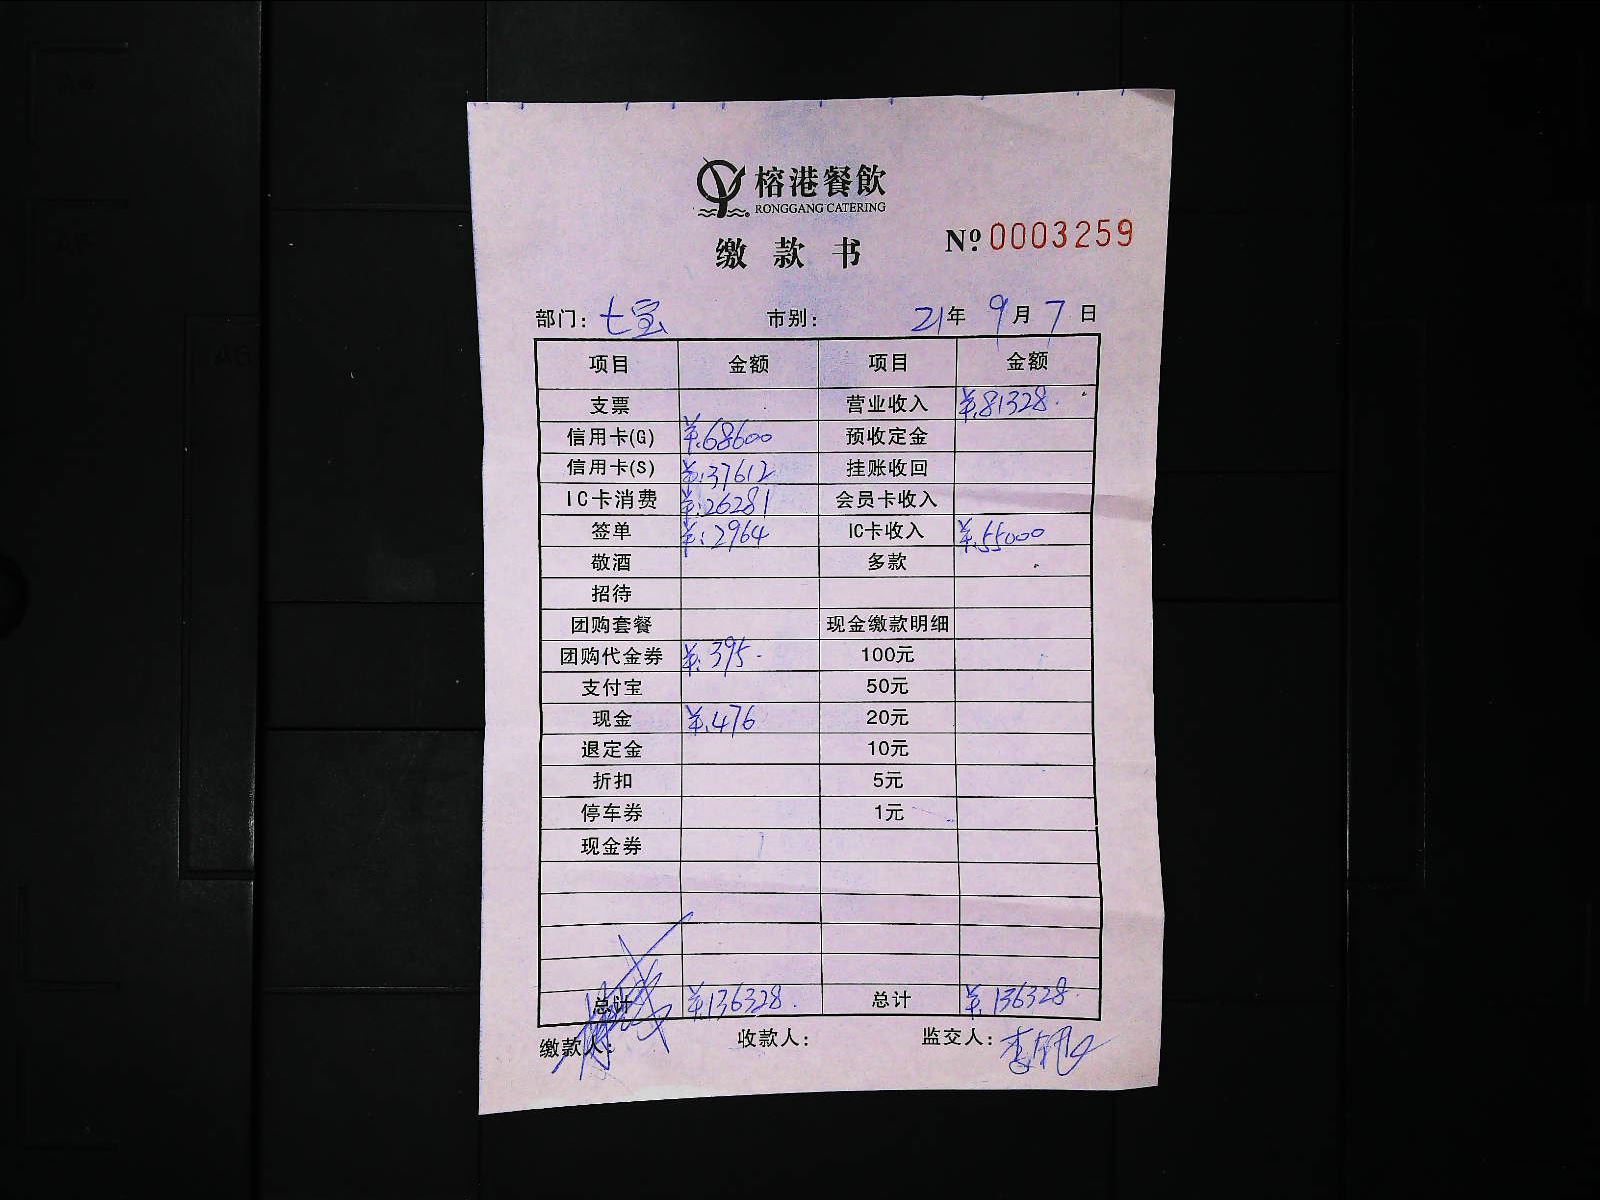 榕港餐飲
RONGGANG CATERING
缴款书
№ 0003259
部门: 七宝 市别: 21年 9月 7日
项目 金额 项目 金额
支票 营业收入 ¥.81328.
信用卡(G) ¥.68600 预收定金
信用卡(S) ¥:37612 挂账收回
IC卡消费 ¥:26281 会员卡收入
签单 ¥:2964 IC卡收入 ¥.55000
敬酒 多款
招待
团购套餐 现金缴款明细
团购代金券 ¥:395. 100元
支付宝 50元
现金 ¥.476 20元
退定金 10元
折扣 5元
停车券 1元
现金券
总计 ¥.136328. 总计 ¥.136328.
缴款人: 收款人: 监交人: